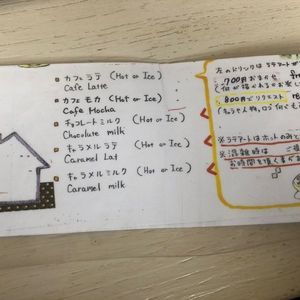 カフェラテ (Hot or Ice)
Cafe Latte
カフェモカ (Hot or Ice)
Cafe Mocha
チョコレートミルク (Hot or Ice)
Chocolate milk
キャラメルラテ (Hot or Ice)
Caramel Lat
キャラメルミルク (Hot or Ice)
Caramel milk
左のドリンクは ラテアート
700円おまかせ
800円でリクエスト
※ラテアートはホットのみ
※混雑時は
お時間を頂くます